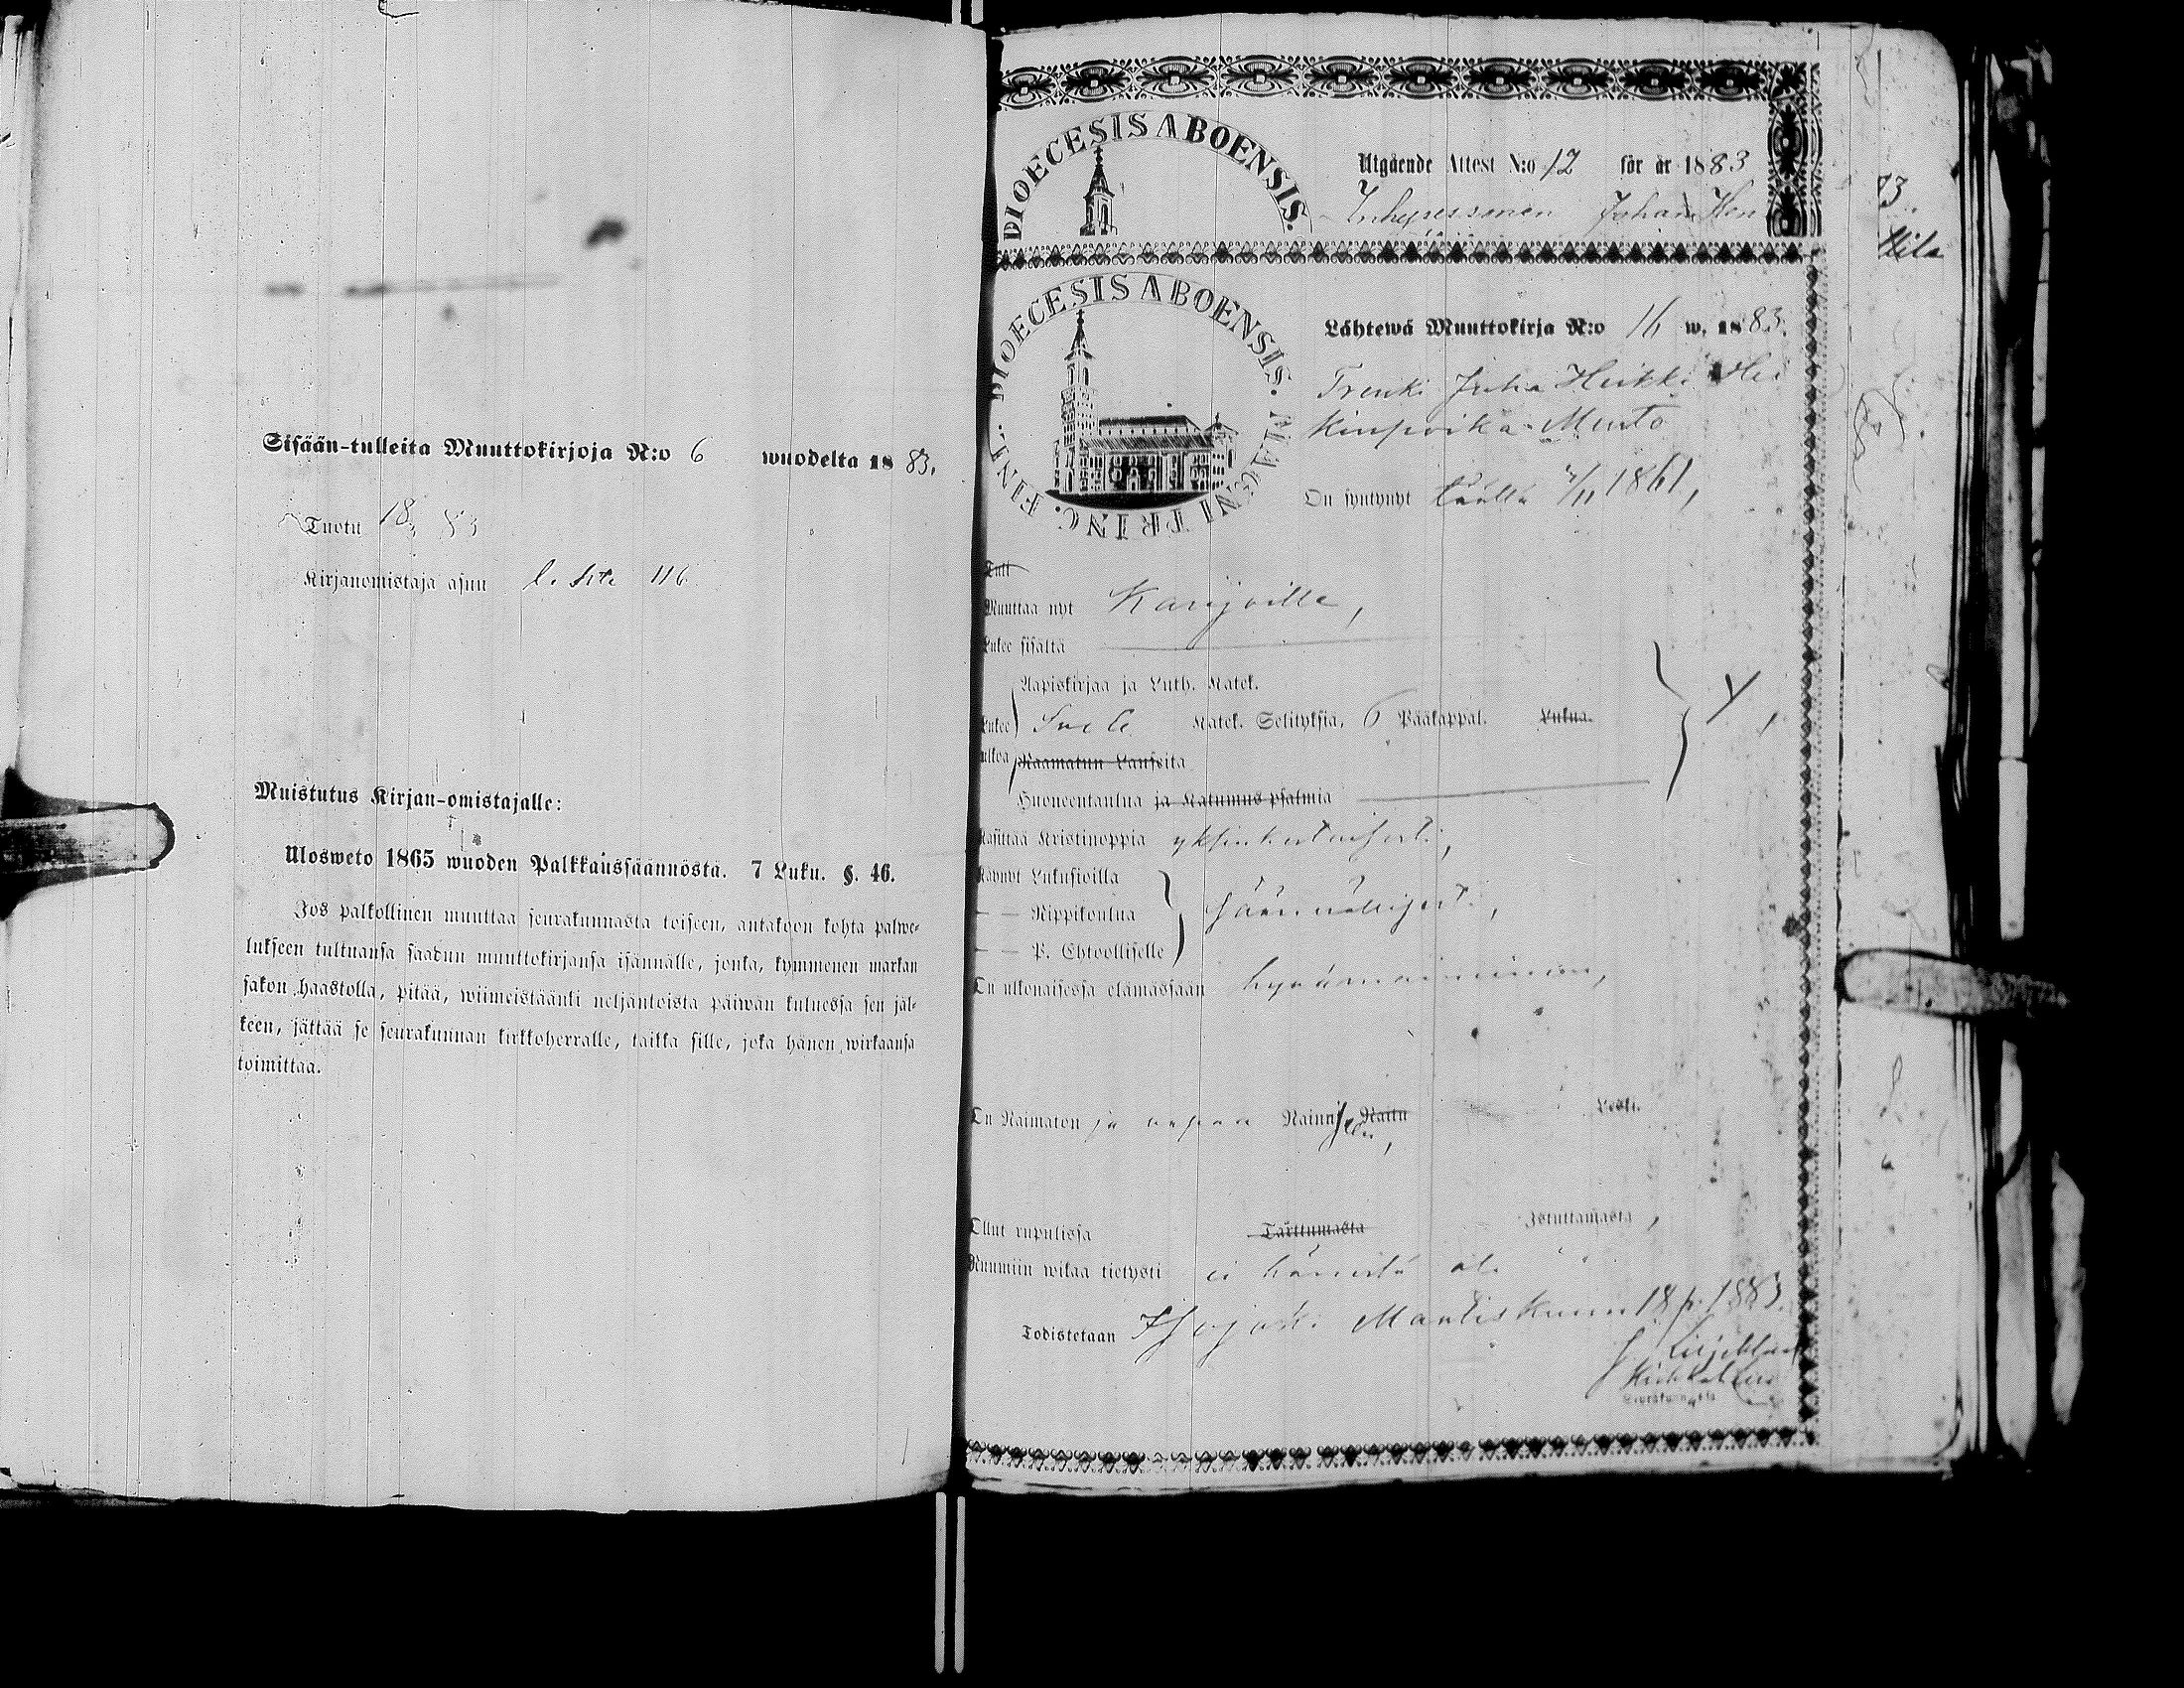 Sisään-tulleita Muuttokirjoja N:o 6 wuodelta 1883.
Tuotu 18 83
Kirjanomistaja asuu l. Site 116
Muistutus Kirjan-omistajalle:
Ulosweto 1865 wuoden Palkkaussäännöstä. 7 Luku. §. 46.
Jos palkollinen muuttaa seurakunnasta toiseen, antakoon kohta palwe-
lukseen tultuansa saadun muuttokirjansa isännälle, jonka, kymmenen markan
sakon haastolla, pitää, wiimeistäänki neljäntoista päiwän kuluessa sen jäl-
keen, jättää se seurakunnan kirkkoherralle, taikka sille, joka hänen wirkaansa
toimittaa.
DIOECESIS ABOENSIS.
Utgående Attest N:o 12 för år 1883
Inhysessonen Johan Hen
73
DIOECESIS ABOENSIS. MAGNI PRINC. FINL.
Lähtewä Muuttokirja N:o 16 w. 1883.
Trenki Juha Heikki Hei
kinpoika Musto
On syntynyt täällä 1861,
Tull
Muuttaa nyt Karijoille,
Lukee sisältä
Aapiskirjaa ja Luth. Katek.
Lukee Katek. Selityksiä, 6 Pääkappal. Lukua.
ulkoa Raamatun Lauseita
Huoneentaulua ja Katumus psalmia
Käsittää Kristinoppia yksinkertaisesti,
Käynyt Lukusioilla
— — Rippikoulua säännöllisesti,
— — P. Ehtoolliselle
On ulkonaisessa elämässään hyvämaininen,
On Naimaton ja vapaa Naimiseen, Naitu Leski.
Ollut rupulissa Tarttumasta Istuttamasta,
Ruumiin wikaa tietysti ei hänestä ole
Todistetaan Isojoki Maaliskuun 18 p. 1883.
Liljeblad
Kirkkoherra